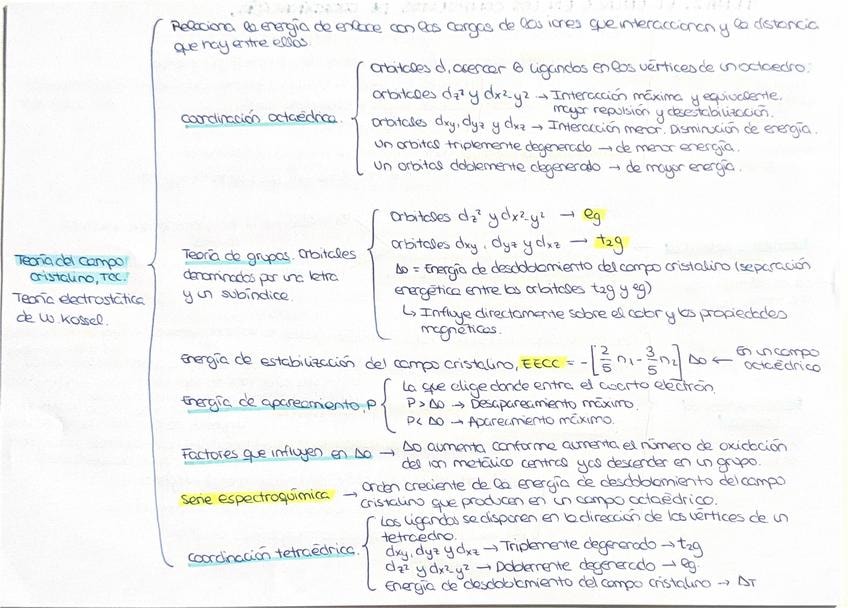 Relaciona la energía de enlace con las cargas de los iones que interaccionan y la distancia
que hay entre ellos.
Coordinación octaédrica.
Orbitales d, acercar 6 ligandos en los vértices de un octaedro.
Orbitales dz² y dx²-y² → Interacción máxima y equivalente.
mayor repulsión y desestabilización.
Orbitales dxy, dyz y dxz → Interacción menor. Disminución de energía.
Un orbital triplemente degenerado → de menor energía.
Un orbital doblemente degenerado → de mayor energía.
Teoría del campo
cristalino, TCC.
Teoría electrostática
de W. Kossel.
Teoría de grupos. Orbitales
denominados por una letra
y un subíndice.
Orbitales dz² y dx²-y² → eg
Orbitales dxy, dyz y dxz → t2g
Δo = Energía de desdoblamiento del campo cristalino (separación
energética entre los orbitales t2g y eg)
↳ Influye directamente sobre el color y las propiedades
magnéticas.
Energía de estabilización del campo cristalino, EECC = -[2/5 n1 - 3/5 n2] Δo ← En un campo
octaédrico
Energía de apareamiento, P
La que elige donde entra el cuarto electrón.
P > Δo → Desapareamiento máximo.
P < Δo → Apareamiento máximo.
Factores que influyen en Δo → Δo aumenta conforme aumenta el número de oxidación
del ion metálico central y al descender en un grupo.
Serie espectroquímica → Orden creciente de la energía de desdoblamiento del campo
cristalino que producen en un campo octaédrico.
Coordinación tetraédrica.
Los ligandos se disponen en la dirección de los vértices de un
tetraedro.
dxy, dyz y dxz → Triplemente degenerado → t2g
dz² y dx²-y² → Doblemente degenerado → eg.
Energía de desdoblamiento del campo cristalino → ΔT